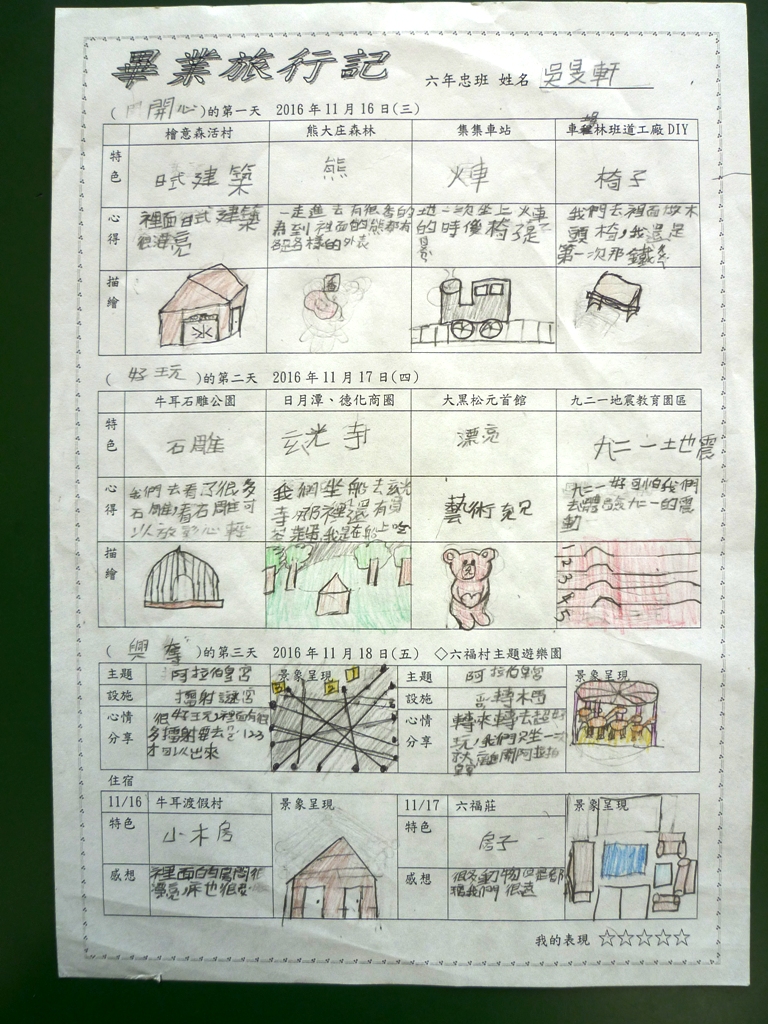 畢業旅行記
六年忠班 姓名 吳旻軒
(開心)的第一天 2016年11月16日(三)
檜意森活村 熊大庄森林 集集車站 車埕林班道工廠DIY
特色 日式建築 熊 火車 椅子
心得
裡面日式建築
很漂亮
一走進去有很香的
看到裡面的熊都有
各樣的外表
第一次坐上火車
的時候
我們去裡面做木
頭椅,我還是
第一次
描繪
(好玩)的第二天 2016年11月17日(四)
牛耳石雕公園 日月潭、德化商圈 大黑松元首館 九二一地震教育園區
特色 石雕 玄光寺 漂亮 九二一土地震
心得
我們去看了很多
石雕,看石雕可
以放鬆心
我們坐船去玄光
寺,那裡還有賣
茶葉蛋,我是在船上吃
藝術
九二一好可怕我們
去體驗九二一的震
動
描繪
1
2
3
4
5
(興奮)的第三天 2016年11月18日(五) ◇六福村主題遊樂園
主題 阿拉伯皇宮 景象呈現 主題 阿拉伯皇宮 景象呈現
設施 擂射謎宮 設施 轉木馬
心情分享
很好玩裡面有很
多擂射要去 123
才可以出來
心情分享
轉來轉去超好
玩,我們只坐一次
就離開阿拉伯
皇宮
住宿
11/16 牛耳渡假村 景象呈現 11/17 六福莊 景象呈現
特色 小木房 特色 房子
感想
裡面的房間很
漂亮,床也很
感想
很多動物但是都
離我們很遠
我的表現 ☆☆☆☆☆